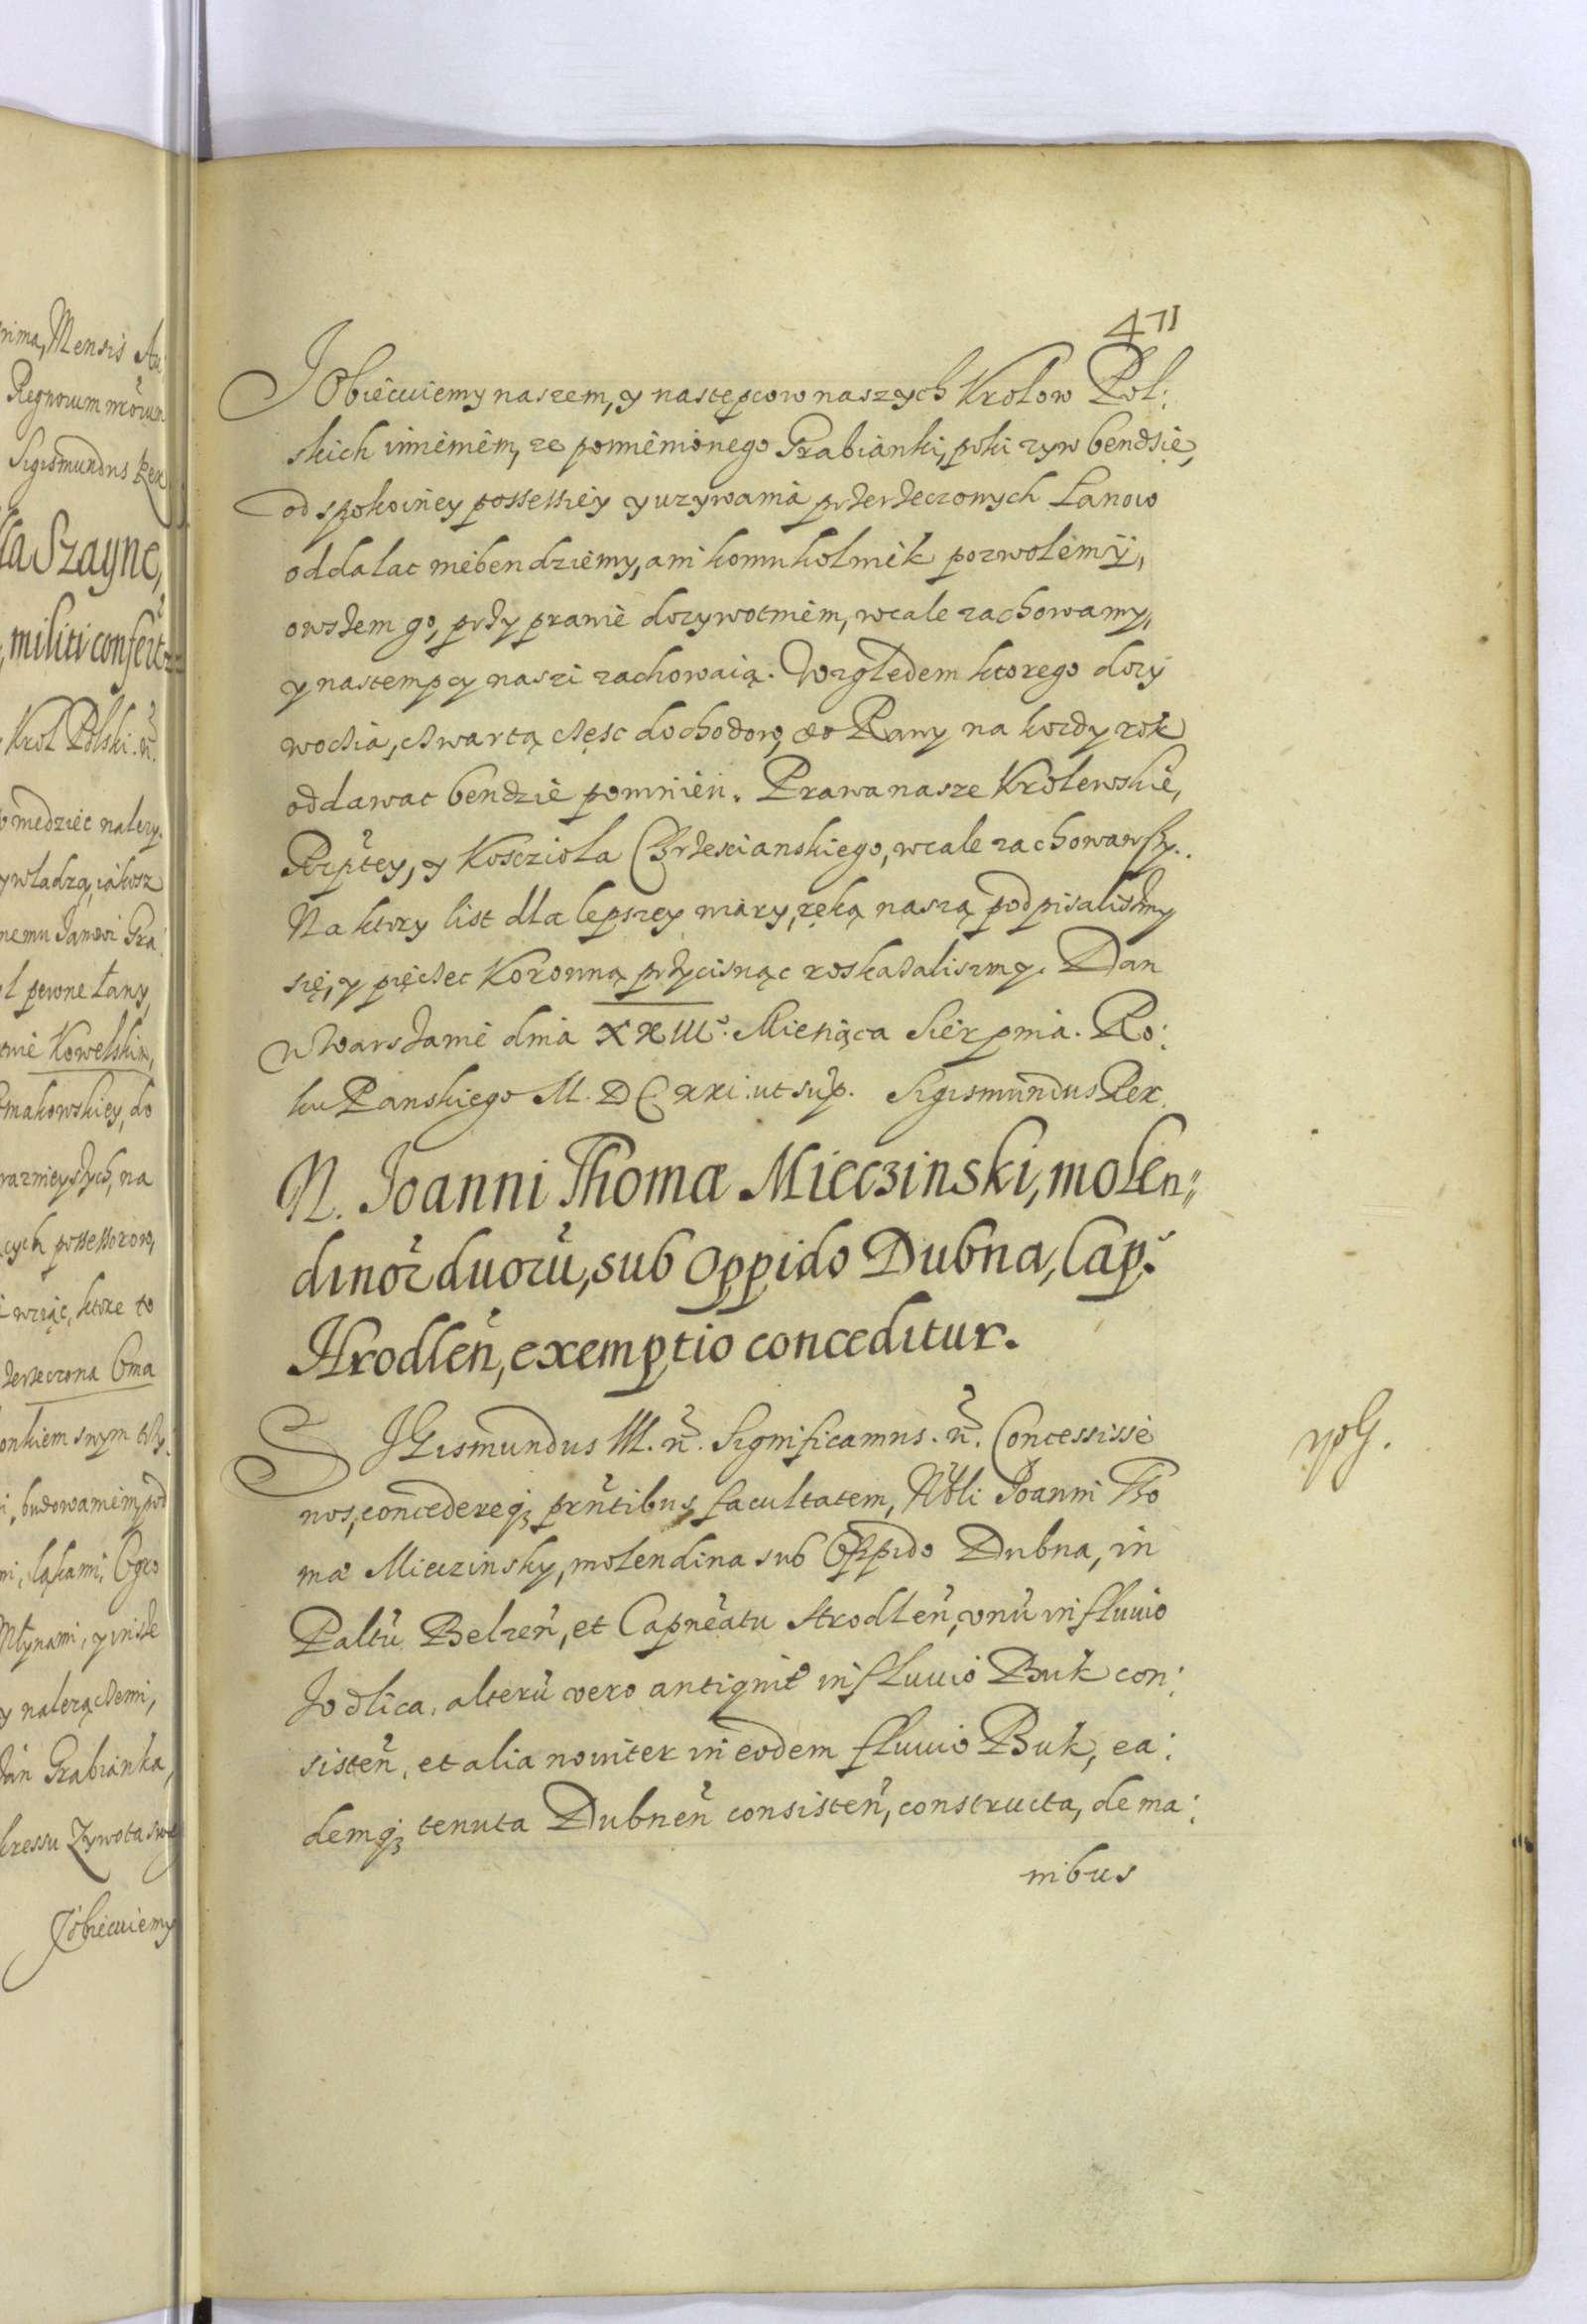 nima, Mensis Au:
Regnorum nrõrum
Sigismundus Rex
la Szayne,
militi confert
Krol Polski. ñ.
medziec nalezy.
y władzą, iakosz
nemu Janowi Gra:
pewne łany,
Kowelskim,
makowskiey, do
razmieyszych, na
cych possessorow,
wziąc, ktore to
rzeczona Oma
onkiem swym
budowaniem, pod
łąkami, Ogro
Młynami, y insze
y nalezączemi,
Jan Grabianka,
kressu Zywota swe
Jobiecuiemy
471
JObiecuiemy naszem, y nastepcow naszych Krolow Pol:
skich imieniem, ze pomienionego Grabianki, poki zyw bendzie,
od spokoiney possessiey y uzywania przerzeczonych Lanow
oddalac niebendziemy, ani komukolwiek pozwolemy,
owszem go, przy prawie dozywotniem, wcale zachowamy,
y nastempcy naszi zachowaią. Względem ktorego dozy
wocia, czwartą częsc dochodow, do Rawy na kozdy rok
oddawac bendzie powinien. Prawa nasze Krolewskie,
Rzptey, y Koscziola Chrzescianskiego, wcale zachowawszy.
Na ktory list dla lepszey wiary, ręką naszą podpisalismy
się, y pięczec Koronną przycisnąc roskazaliszmy. Dan
w Warszawie dnia XXIII. Miesiąca Sierpnia. Ro:
ku Panskiego M. D C xxi. ut sup. Sigismundus Rex.
N. Joanni Thomæ Mieczinski, molen:
dinor̃ duorũ, sub Oppido Dubna, Cap.
Hrodleñ, exemptio conceditur.
SJGismundus III. ñ. Significamus. ñ. Concessisse
nos, concedereq3 prñtibus facultatem, Nbli Joanni Tho
mæ Mieczinsky, molendina sub Oppido Dubna, in
Paltũ Belzeñ, et Capneatu Hrodleñ, unũ in fluuio
Jodlica, alterũ vero antiquit9 in fluuio Buk con:
sisteñ, et alia nouiter in eodem fluuio Buk, ea:
demq3 tenuta Dubneñ consisteñ, constructa, de ma:
nibus